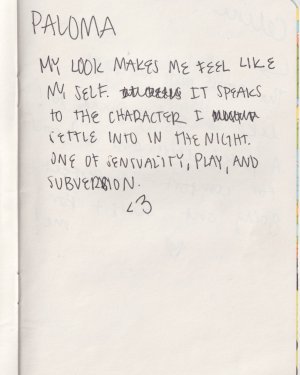 PALOMA
MY LOOK MAKES ME FEEL LIKE
MY SELF. IT SPEAKS
TO THE CHARACTER I
SETTLE INTO IN THE NIGHT.
ONE OF SENSUALITY, PLAY, AND
SUBVERSION.
<3